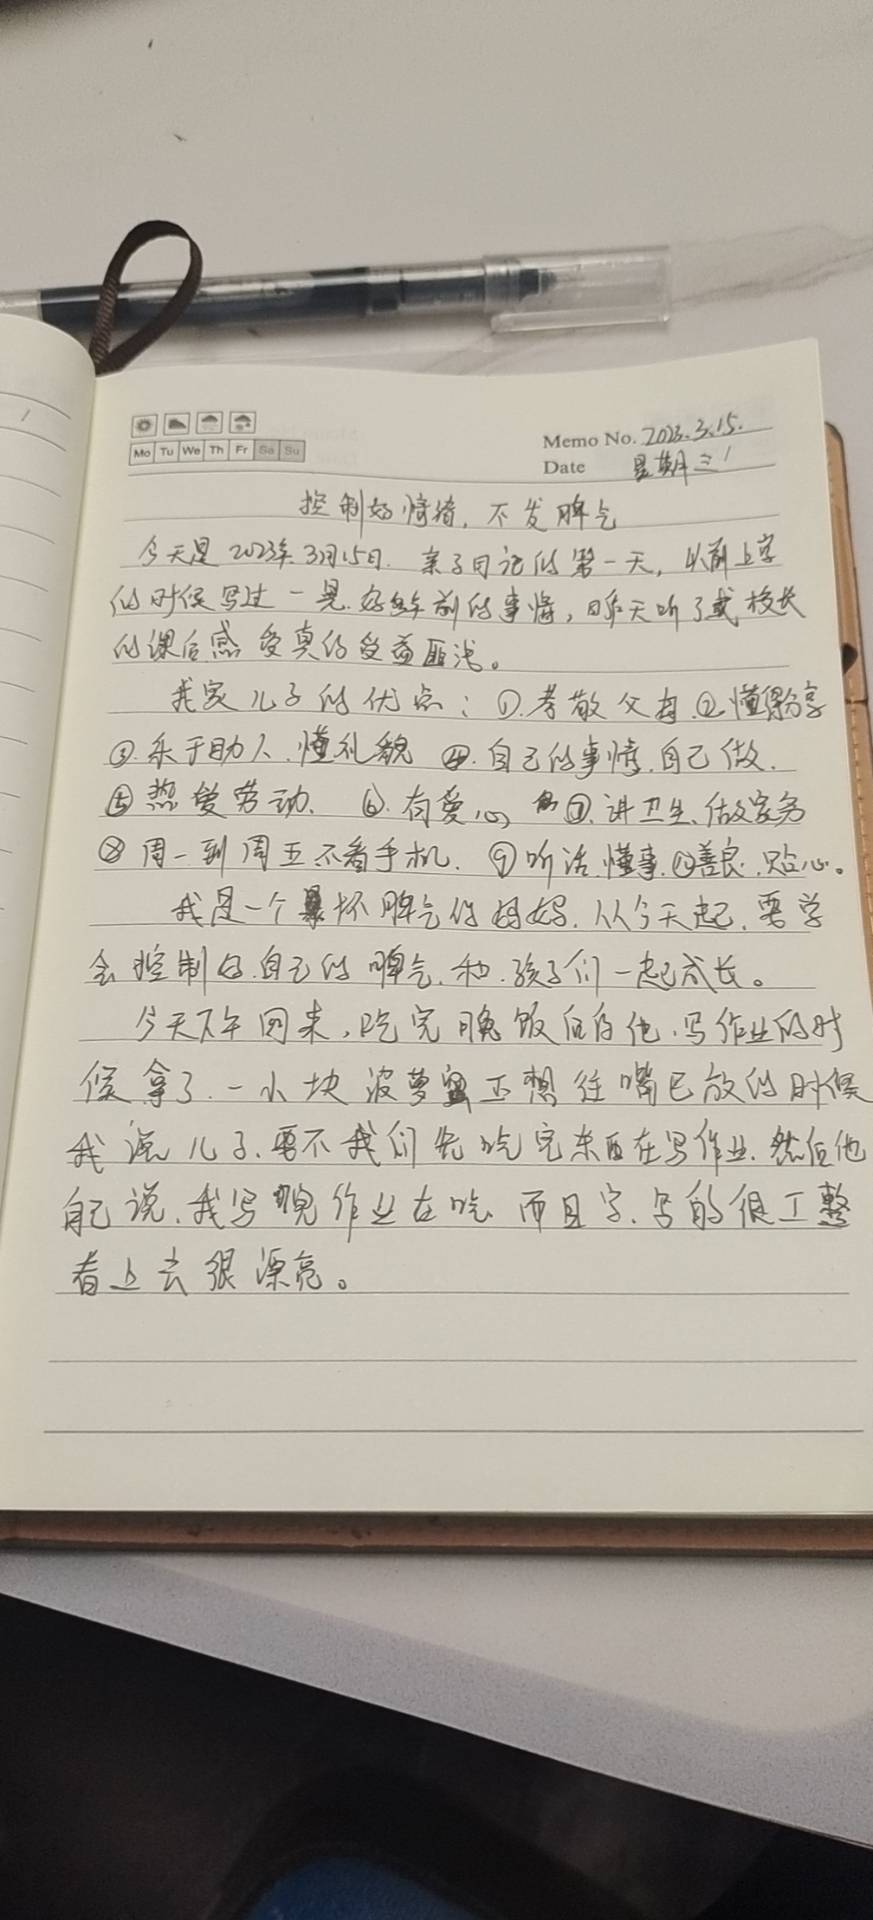 Mo Tu We Th Fr Sa Su
Memo No. 2023.3.15.
Date 星期三
控制好情绪，不发脾气
今天是2023年3月15日. 亲子日记的第一天，以前上学
的时候写过 一晃.好多年前的事情，昨天听了戴校长
的课后感 受真的受益匪浅。
我家儿子的优点：①.孝敬父母.②懂得分享
③.乐于助人、懂礼貌 ④.自己的事情.自己做.
⑤热爱劳动、 ⑥.有爱心 ⑦.讲卫生、做家务
⑧周一到周五不看手机. ⑨听话.懂事.⑩善良.贴心。
我是一个坏脾气的妈妈.从今天起.要学
会控制好.自己的脾气.和.孩子们一起成长。
今天下午回来，吃完晚饭后的他.写作业的时
候拿了.一小块菠萝蜜正想往嘴巴放的时候
我说儿子、要不我们先吃完东西在写作业.然后他
自己说、我写完作业在吃 而且字.写的很工整
看上去很漂亮。